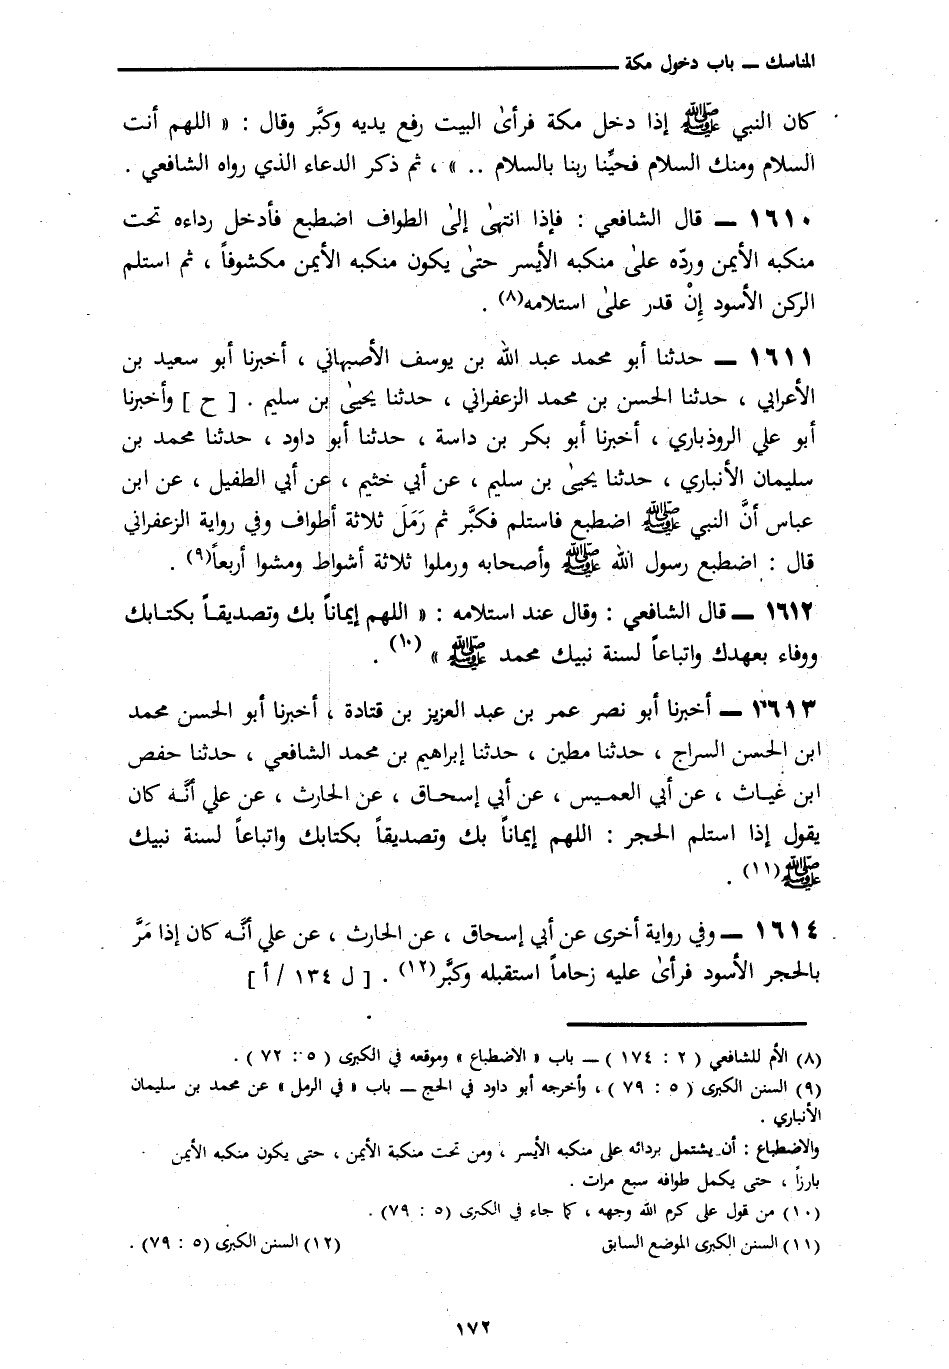 المناسك ــ باب دخول مكة
كان النبي ﷺ إذا دخل مكة فرأىٰ البيت رفع يديه وكبَّر وقال : « اللهم أنت
السلام ومنك السلام فحيِّنا ربنا بالسلام .. » ، ثم ذكر الدعاء الذي رواه الشافعي .
١٦١٠ ــ قال الشافعي : فإذا انتهىٰ إلىٰ الطواف اضطبع فأدخل رداءه تحت
منكبه الأيمن وردّه علىٰ منكبه الأيسر حتىٰ يكون منكبه الأيمن مكشوفاً ، ثم استلم
الركن الأسود إِنْ قدر علىٰ استلامه(٨) .
١٦١١ ــ حدثنا أبو محمد عبد الله بن يوسف الأصبهاني ، أخبرنا أبو سعيد بن
الأعرابي ، حدثنا الحسن بن محمد الزعفراني ، حدثنا يحيىٰ بن سليم . [ ح ] وأخبرنا
أبو علي الروذباري ، أخبرنا أبو بكر بن داسة ، حدثنا أبو داود ، حدثنا محمد بن
سليمان الأنباري ، حدثنا يحيىٰ بن سليم ، عن أبي خثيم ، عن أبي الطفيل ، عن ابن
عباس أنَّ النبي ﷺ اضطبع فاستلم فكبَّر ثم رَمَلَ ثلاثة أطواف وفي رواية الزعفراني
قال : اضطبع رسول الله ﷺ وأصحابه ورملوا ثلاثة أشواط ومشوا أربعاً(٩) .
١٦١٢ ــ قال الشافعي : وقال عند استلامه : « اللهم إيماناً بك وتصديقـاً بكتـابك
ووفاء بعهدك واتباعاً لسنة نبيك محمد ﷺ » (١٠) .
١٦١٣ ــ أخبرنا أبو نصر عمر بن عبد العزيز بن قتادة ، أخبرنا أبو الحسن محمد
ابن الحسن السراج ، حدثنا مطين ، حدثنا إبراهيم بن محمد الشافعي ، حدثنا حفص
ابن غيـاث ، عن أبي العمـيس ، عن أبي إسحـاق ، عن الحارث ، عن علي أنَّـه كان
يقول إذا استلم الحجر : اللهم إيماناً بك وتصديقاً بكتابك واتباعاً لسنة نبيك
ﷺ(١١) .
١٦١٤ ــ وفي رواية أخرى عن أبي إسحاق ، عن الحارث ، عن علي أنَّـه كان إذا مَرَّ
بالحجر الأسود فرأىٰ عليه زحاماً استقبله وكبَّر(١٢) . [ ل ١٣٤ / أ ]
(٨) الأم للشافعي ( ٢ : ١٧٤ ) ــ باب « الاضطباع » وموقعه في الكبرى ( ٥ : ٧٢ ) .
(٩) السنن الكبرى ( ٥ : ٧٩ ) ، وأخرجه أبو داود في الحج ــ باب « في الرمل » عن محمد بن سليمان
الأنباري .
والاضطباع : أن يشتمل بردائه على منكبه الأيسر ، ومن تحت منكبة الأيمن ، حتى يكون منكبه الأيمن
بارزاً ، حتى يكمل طوافه سبع مرات .
(١٠) من قول علي كرم الله وجهه ، كما جاء في الكبرى (٥ : ٧٩) .
(١١) السنن الكبرى الموضع السابق (١٢) السنن الكبرى (٥ : ٧٩) .
١٧٢